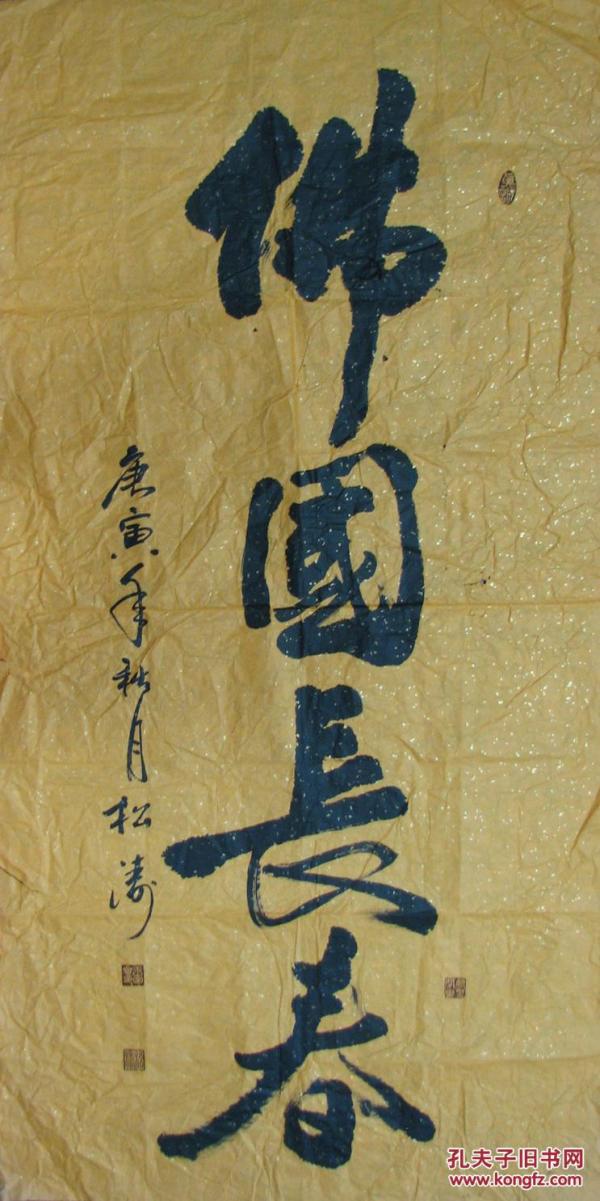 佛國長春
庚寅年秋月松濤
孔夫子旧书网
www.kongfz.com